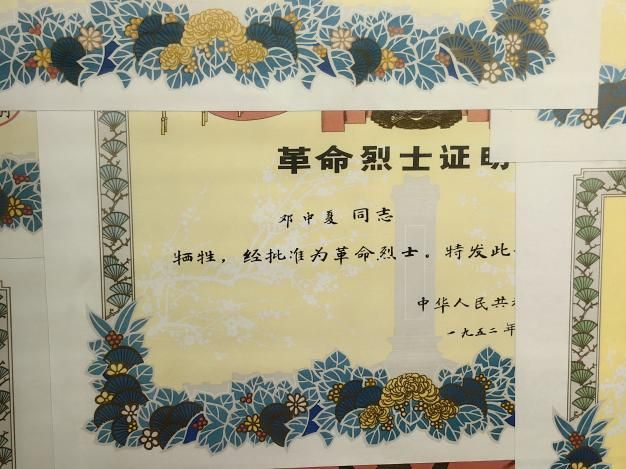 革命烈士证明
邓中夏 同志
牺牲，经批准为革命烈士。特发此
中华人民共
一九五二年